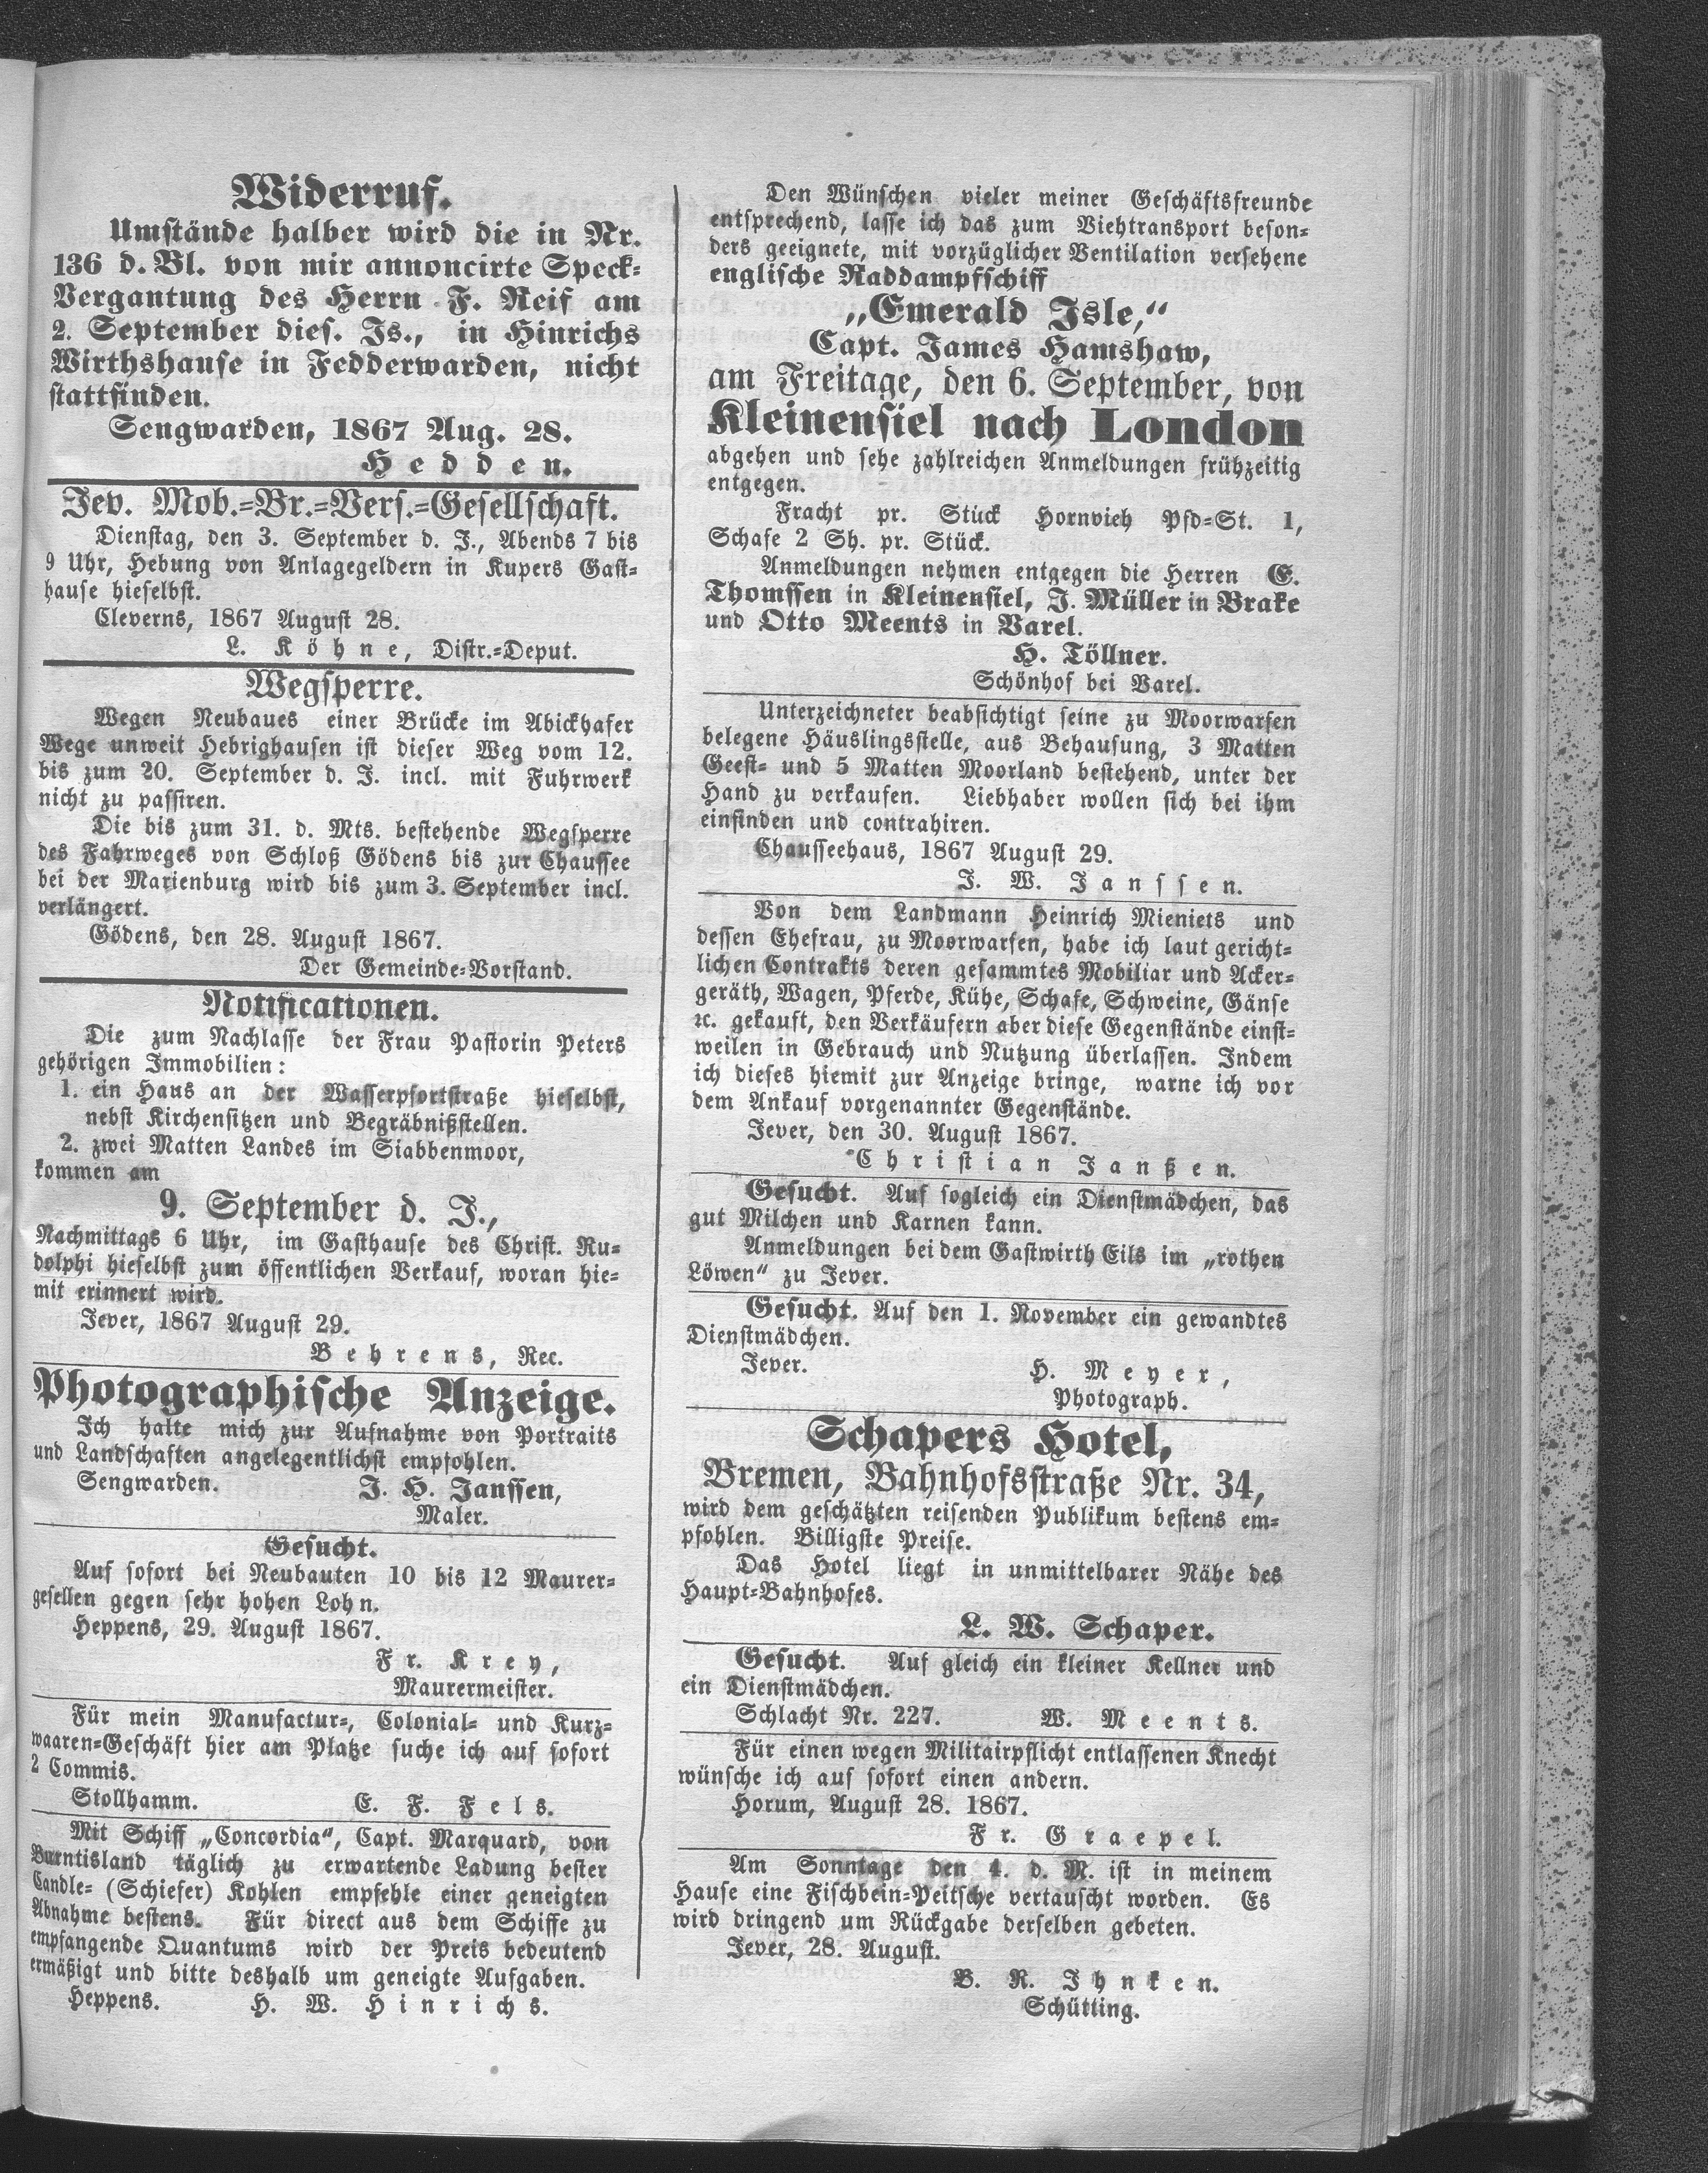 Widerruf.
Umstände halber wird die in Nr.
136 d. Bl. von mir annoncirte Speck-
Vergantung des Herrn F. Reif am
2. September dies. Js., in Hinrichs
Wirthshause in Fedderwarden, nicht
stattfinden.
Sengwarden, 1867 Aug. 28.
Hedden.
Jev. Mob.-Br.-Vers.-Gesellschaft.
Dienstag, den 3. September d. J., Abends 7 bis
9 Uhr, Hebung von Anlagegeldern in Kupers Gast-
hause hieselbst.
Cleverns, 1867 August 28.
L. Köhne, Distr.-Deput.
Wegsperre.
Wegen Neubaues einer Brücke im Abickhafer
Wege unweit Hebrighausen ist dieser Weg vom 12.
bis zum 20. September d. J. incl. mit Fuhrwerk
nicht zu passiren.
Die bis zum 31. d. Mts. bestehende Wegsperre
des Fahrweges von Schloß Gödens bis zur Chaussee
bei der Marienburg wird bis zum 3. September incl.
verlängert.
Gödens, den 28. August 1867.
Der Gemeinde-Vorstand.
Notificationen.
Die zum Nachlasse der Frau Pastorin Peters
gehörigen Immobilien:
1. ein Haus an der Wasserpfortstraße hieselbst,
nebst Kirchensitzen und Begräbnißstellen.
2. zwei Matten Landes im Siabbenmoor,
kommen am
9. September d. J.,
Nachmittags 6 Uhr, im Gasthause des Christ. Ru-
dolphi hieselbst zum öffentlichen Verkauf, woran hie-
mit erinnert wird.
Jever, 1867 August 29.
Behrens, Rec.
Photographische Anzeige.
Ich halte mich zur Aufnahme von Portraits
und Landschaften angelegentlichst empfohlen.
Sengwarden. J. H. Janssen,
Maler.
Gesucht.
Auf sofort bei Neubauten 10 bis 12 Maurer-
gesellen gegen sehr hohen Lohn.
Heppens, 29. August 1867.
Fr. Krey,
Maurermeister.
Für mein Manufactur-, Colonial- und Kurz-
waaren-Geschäft hier am Platze suche ich auf sofort
2 Commis.
Stollhamm. E. F. Fels.
Mit Schiff „Concordia“, Capt. Marquard, von
Burntisland täglich zu erwartende Ladung bester
Candle- (Schiefer) Kohlen empfehle einer geneigten
Abnahme bestens. Für direct aus dem Schiffe zu
empfangende Quantums wird der Preis bedeutend
ermäßigt und bitte deshalb um geneigte Aufgaben.
Heppens. H. W. Hinrichs.
Den Wünschen vieler meiner Geschäftsfreunde
entsprechend, lasse ich das zum Viehtransport beson-
ders geeignete, mit vorzüglicher Ventilation versehene
englische Raddampfschiff
„Emerald Isle,“
Capt. James Hamshaw,
am Freitage, den 6. September, von
Kleinensiel nach London
abgehen und sehe zahlreichen Anmeldungen frühzeitig
entgegen.
Fracht pr. Stück Hornvieh Pfd-St. 1,
Schafe 2 Sh. pr. Stück.
Anmeldungen nehmen entgegen die Herren E.
Thomssen in Kleinensiel, J. Müller in Brake
und Otto Meents in Varel.
H. Töllner.
Schönhof bei Varel.
Unterzeichneter beabsichtigt seine zu Moorwarfen
belegene Häuslingsstelle, aus Behausung, 3 Matten
Geest- und 5 Matten Moorland bestehend, unter der
Hand zu verkaufen. Liebhaber wollen sich bei ihm
einfinden und contrahiren.
Chausseehaus, 1867 August 29.
J. W. Janssen.
Von dem Landmann Heinrich Mieniets und
dessen Ehefrau, zu Moorwarfen, habe ich laut gericht-
lichen Contrakts deren gesammtes Mobiliar und Acker-
geräth, Wagen, Pferde, Kühe, Schafe, Schweine, Gänse
ꝛc. gekauft, den Verkäufern aber diese Gegenstände einst-
weilen in Gebrauch und Nutzung überlassen. Indem
ich dieses hiemit zur Anzeige bringe, warne ich vor
dem Ankauf vorgenannter Gegenstände.
Jever, den 30. August 1867.
Christian Janßen.
Gesucht. Auf sogleich ein Dienstmädchen, das
gut Milchen und Karnen kann.
Anmeldungen bei dem Gastwirth Eils im „rothen
Löwen“ zu Jever.
Gesucht. Auf den 1. November ein gewandtes
Dienstmädchen.
Jever. H. Meyer,
Photograph.
Schapers Hotel,
Bremen, Bahnhofsstraße Nr. 34,
wird dem geschätzten reisenden Publikum bestens em-
pfohlen. Billigste Preise.
Das Hotel liegt in unmittelbarer Nähe des
Haupt-Bahnhofes.
L. W. Schaper.
Gesucht. Auf gleich ein kleiner Kellner und
ein Dienstmädchen.
Schlacht Nr. 227. W. Meents.
Für einen wegen Militairpflicht entlassenen Knecht
wünsche ich auf sofort einen andern.
Horum, August 28. 1867.
Fr. Graepel.
Am Sonntage den 4. d. M. ist in meinem
Hause eine Fischbein-Peitsche vertauscht worden. Es
wird dringend um Rückgabe derselben gebeten.
Jever, 28. August.
B. R. Ihnken.
Schütting.